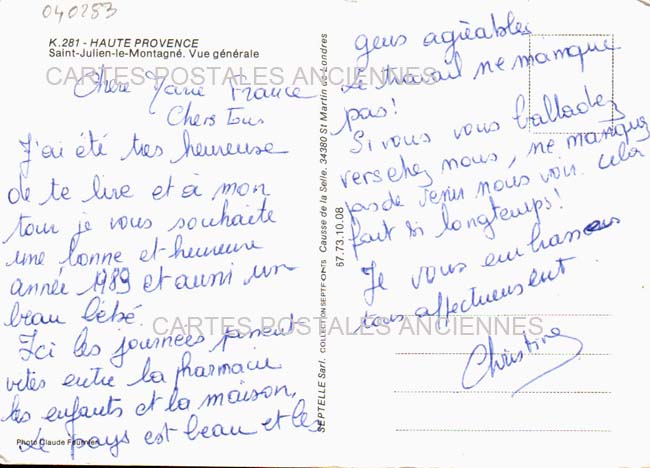 040283
K.281 - HAUTE PROVENCE
Saint-Julien-le-Montagné. Vue générale
CARTES POSTALES ANCIENNES
Chère Marie France
Chers Tous
J'ai été très heureuse
de te lire et à mon
tour je vous souhaite
une bonne et heureuse
année 1989 et aussi un
beau bébé.
CARTES POSTALES ANCIENNES
Ici les journées passent
vites entre la pharmacie
les enfants et la maison.
Le pays est beau et les
Photo Claude Fournier
SEPTELLE Sarl. COLLECTION SEPT-FONTS Causse de la Selle. 34380 St Martin de Londres
67.73.10.08
gens agréables
Le travail ne manque
pas!
Si vous vous balladez
vers chez nous, ne manquez
pas de venir nous voir. Cela
fait si longtemps!
Je vous embrasse
tous affectueusent.
Christine